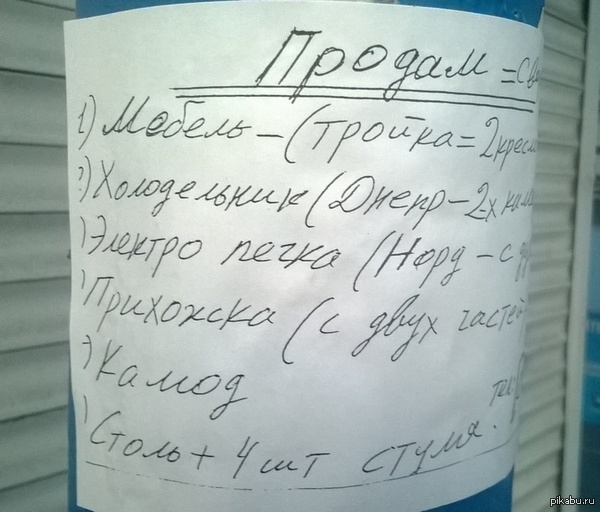 Продам =
1) Мебель – (тройка = 2 кресл
2) Холодельник (Днепр – 2х кам
) Электро печка (Норд – с ду
) Прихожска (с двух частей
) Камод
) Столь + 4 шт стуля.
pikabu.ru